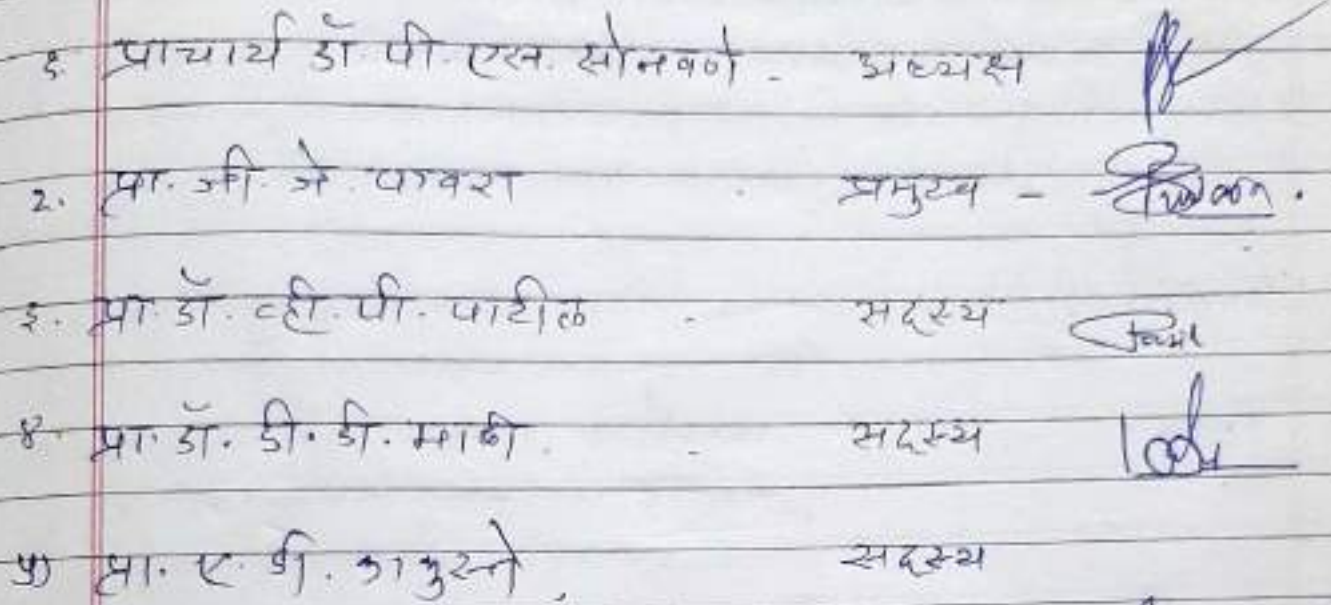 १. प्राचार्य डॉ. पी. एस. सोनवणे - अध्यक्ष
२. प्रा. जी. जे. पावरा - प्रमुख -
३. प्रा. डॉ. व्ही. पी. पाटील - सदस्य
४. प्रा. डॉ. डी. डी. माळी - सदस्य
५) प्रा. ए. सदस्य